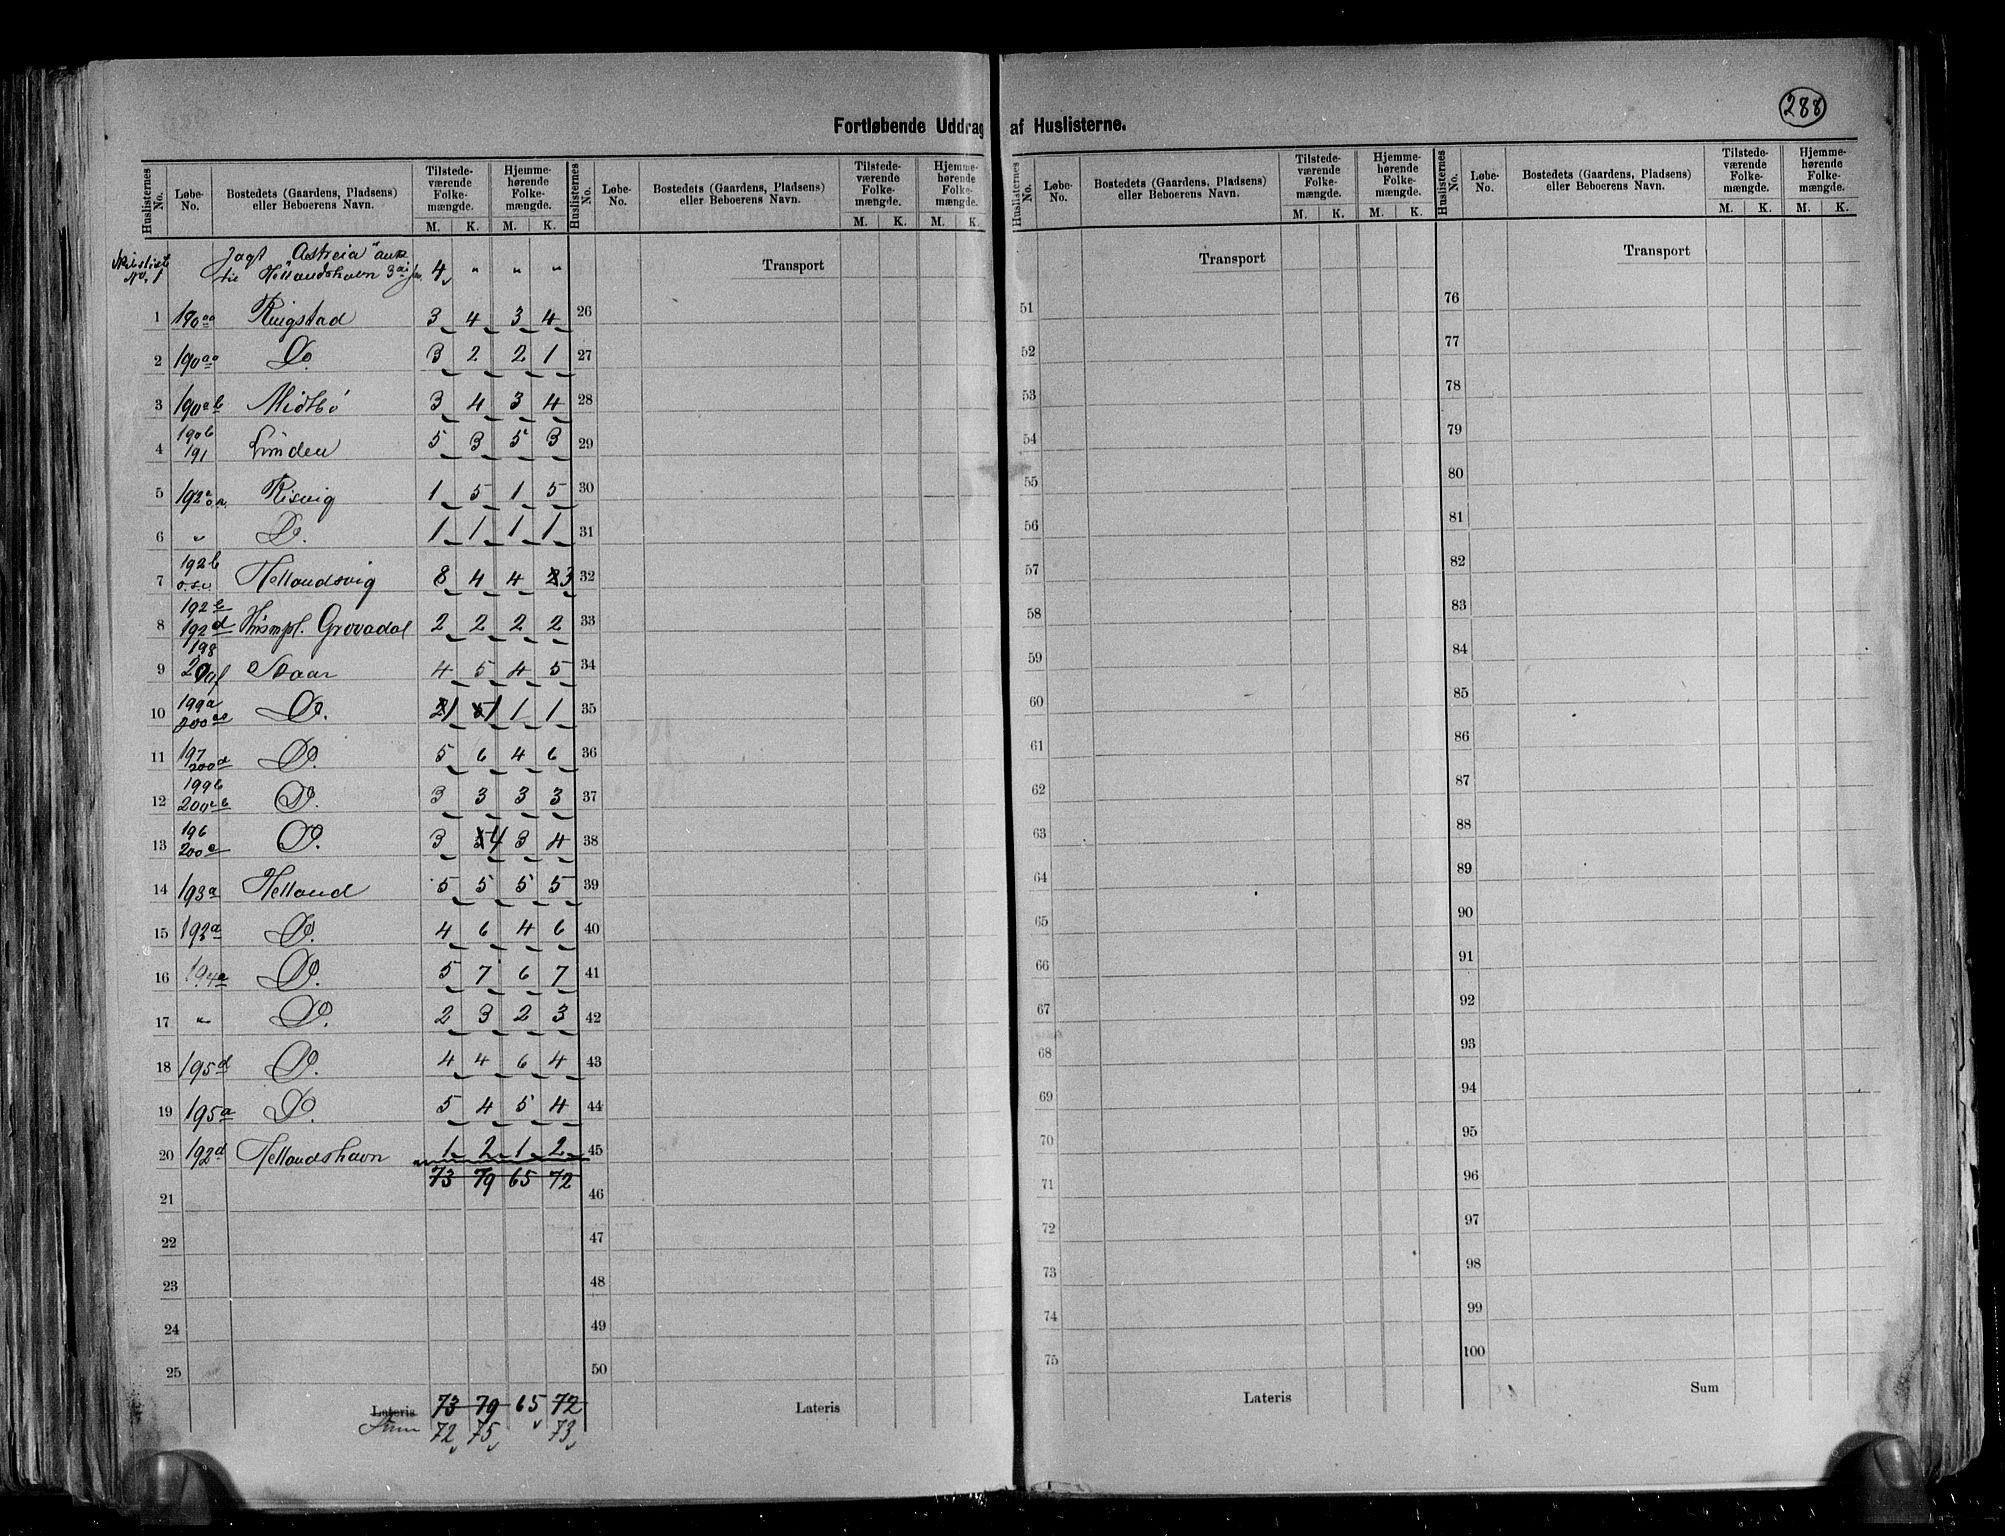 288
Fortløbende Uddrag af Huslisterne.
Huslisternes No. | Løbe-No. | Bostedets (Gaardens, Pladsens) eller Beboerens Navn. | Tilstedeværende Folkemængde. M. K. | Hjemmehørende Folkemængde. M. K.
Huslisternes No. | Løbe-No. | Bostedets (Gaardens, Pladsens) eller Beboerens Navn. | Tilstedeværende Folkemængde. M. K. | Hjemmehørende Folkemængde. M. K.
Huslisternes No. | Løbe-No. | Bostedets (Gaardens, Pladsens) eller Beboerens Navn. | Tilstedeværende Folkemængde. M. K. | Hjemmehørende Folkemængde. M. K.
Huslisternes No. | Løbe-No. | Bostedets (Gaardens, Pladsens) eller Beboerens Navn. | Tilstedeværende Folkemængde. M. K. | Hjemmehørende Folkemængde. M. K.
Skibsliste Jagt "Astreia" ank.
No. 1 til Hellandshavn 3 4 " " "
1 190aa Ringstad 3 4 3 4
2 190aa Do. 3 2 2 1
3 190ab Midtbø 3 4 3 4
4 190b 191 Linden 5 3 5 3
5 192a Risvig 1 5 1 5
6 " Do. 1 1 1 1
7 192b o.s.v. Hellandsvig 8 4 4 2 3
8 192b 192d Husmpl. Grovadal 2 2 2 2
9 198 Skaar 4 5 4 5
10 199a 200 Do. 2 1 1 1 1
11 197 200d Do. 5 6 4 6
12 199b 200b Do. 3 3 3 3
13 196 200c Do. 3 4 3 4
14 193a Helland 5 5 5 5
15 192a Do. 4 6 4 6
16 194a Do. 5 7 6 7
17 " Do. 2 3 2 3
18 195d Do. 4 4 6 4
19 195a Do. 5 4 5 4
20 192d Hellandshavn 1 2 1 2
73 79 65 72
21
22
23
24
25
Lateris 73 79 65 72
Sum 72 75 73
Transport
26
27
28
29
30
31
32
33
34
35
36
37
38
39
40
41
42
43
44
45
46
47
48
49
50
Lateris
Transport
51
52
53
54
55
56
57
58
59
60
61
62
63
64
65
66
67
68
69
70
71
72
73
74
75
Lateris
Transport
76
77
78
79
80
81
82
83
84
85
86
87
88
89
90
91
92
93
94
95
96
97
98
99
100
Sum